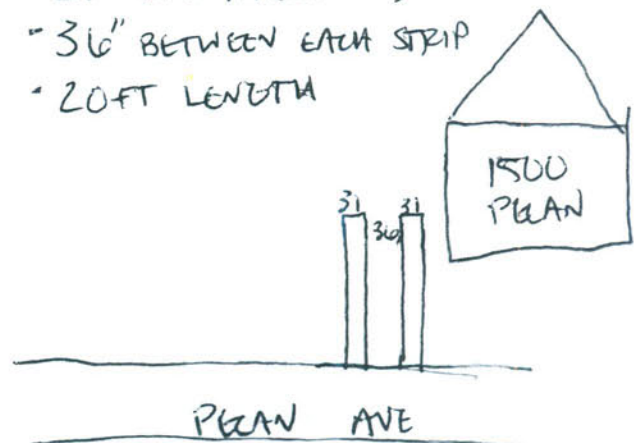 - 36" BETWEEN EACH STRIP
- 20FT LENGTH
1500
PECAN
31 31
36
PECAN AVE